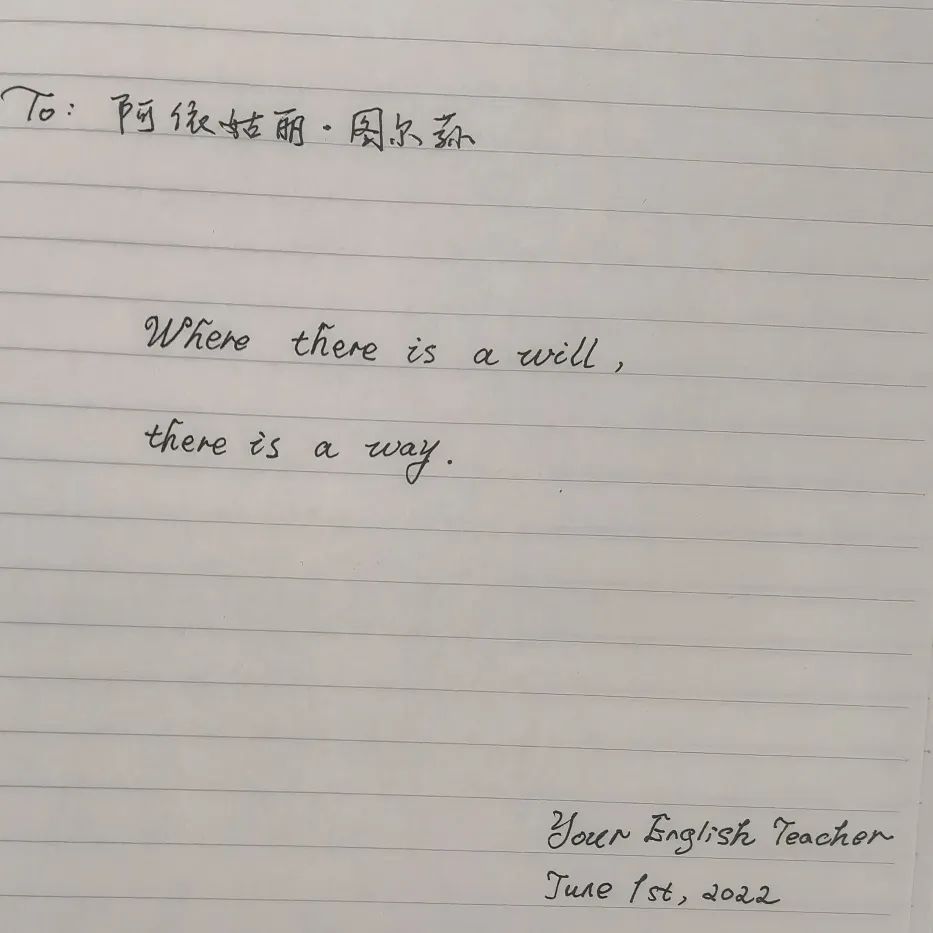 To: 阿依姑丽·图尔荪
Where there is a will,
there is a way.
Your English Teacher
June 1st, 2022